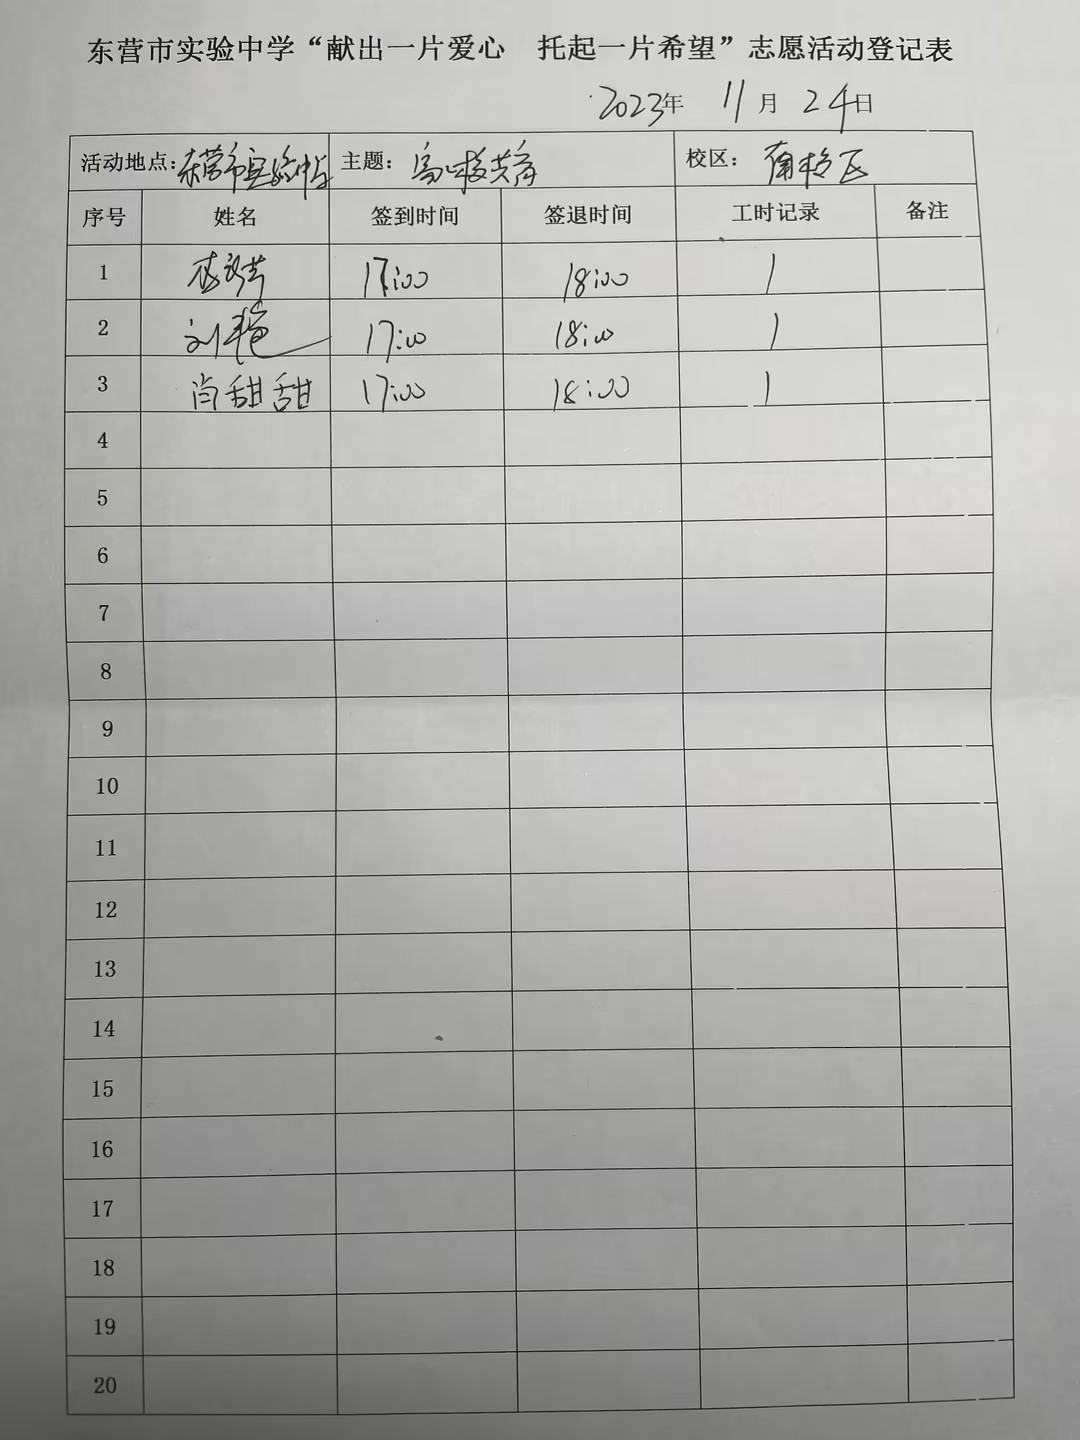 东营市实验中学“献出一片爱心 托起一片希望”志愿活动登记表
2023年 11月 24日
活动地点：东营市实验中学 主题：家校共育 校区：南校区
序号 姓名 签到时间 签退时间 工时记录 备注
1 17:00 18:00 1
2 刘艳 17:00 18:00 1
3 肖甜甜 17:00 18:00 1
4
5
6
7
8
9
10
11
12
13
14
15
16
17
18
19
20